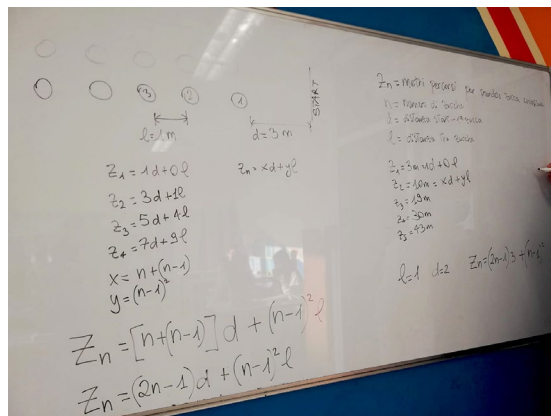 3 2 1
START
l=1m d=3m
Z1=1d+0l Zn=xd+yl
Z2=3d+1l
Z3=5d+4l
Z4=7d+9l
x=n+(n-1)
y=(n-1)²
Zn=[n+(n-1)]d+(n-1)²l
Zn=(2n-1)d+(n-1)²l
Zn=metri percorsi per
n=numero di bocce
d=distanza start-1
l=distanza tra bocce
Z1=3m=1d+0l
Z2=10m=xd+yl
Z3=19m
Z4=30m
Z5=43m
l=1 d=2 Zn=(2n-1)3+(n-1)²